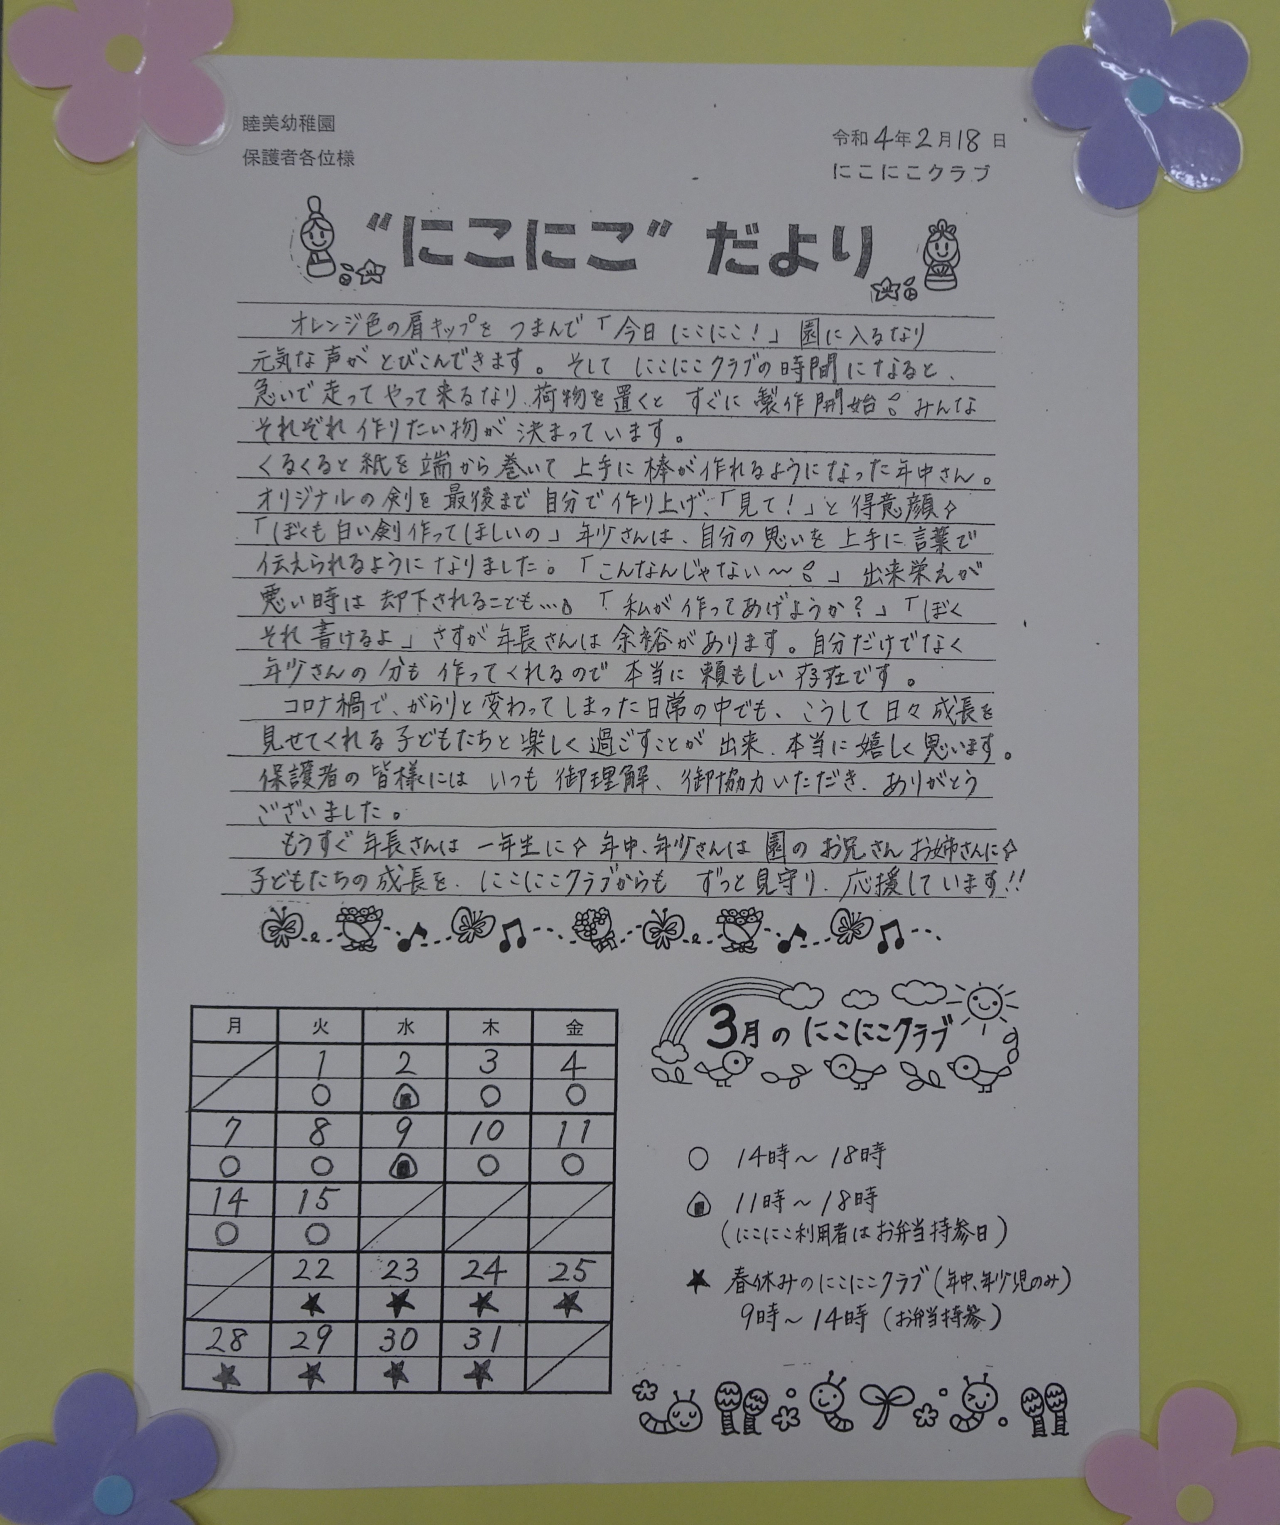 睦美幼稚園
保護者各位様
令和4年2月18日
にこにこクラブ
“にこにこ” だより
オレンジ色の肩キップを つまんで「今日 にこにこ!」園に入るなり
元気な声が とびこんできます。そして にこにこクラブの時間になると、
急いで走ってやって来るなり、荷物を置くと すぐに 製作開始! みんな
それぞれ作りたい物が 決まっています。
くるくると紙を端から巻いて 上手に棒が作れるようになった年中さん。
オリジナルの剣を最後まで自分で作り上げ、「見て!」と得意顔☆
「ぼくも白い剣作ってほしいの」年少さんは、自分の思いを上手に言葉で
伝えられるようになりました。「こんなんじゃない〜!」出来栄えが
悪い時は 却下されることも…。「私が作ってあげようか?」「ぼく
それ書けるよ」さすが年長さんは余裕があります。自分だけでなく
年少さんの分も作ってくれるので 本当に頼もしい存在です。
コロナ禍で、がらりと変わってしまった日常の中でも、こうして日々成長を
見せてくれる子どもたちと楽しく過ごすことが出来、本当に嬉しく思います。
保護者の皆様には いつも御理解、御協力いただき、ありがとう
ございました。
もうすぐ年長さんは 一年生に☆ 年中、年少さんは園のお兄さんお姉さんに☆
子どもたちの成長を、にこにこクラブからも ずっと見守り、応援しています!!
3月のにこにこクラブ
月 火 水 木 金
1 2 3 4
○ ○ ○
7 8 9 10 11
○ ○ ○ ○
14 15
○ ○
22 23 24 25
★ ★ ★ ★
28 29 30 31
★ ★ ★ ★
○ 14時〜18時
11時〜18時
(にこにこ利用者はお弁当持参日)
★ 春休みのにこにこクラブ(年中、年少児のみ)
9時〜14時(お弁当持参)